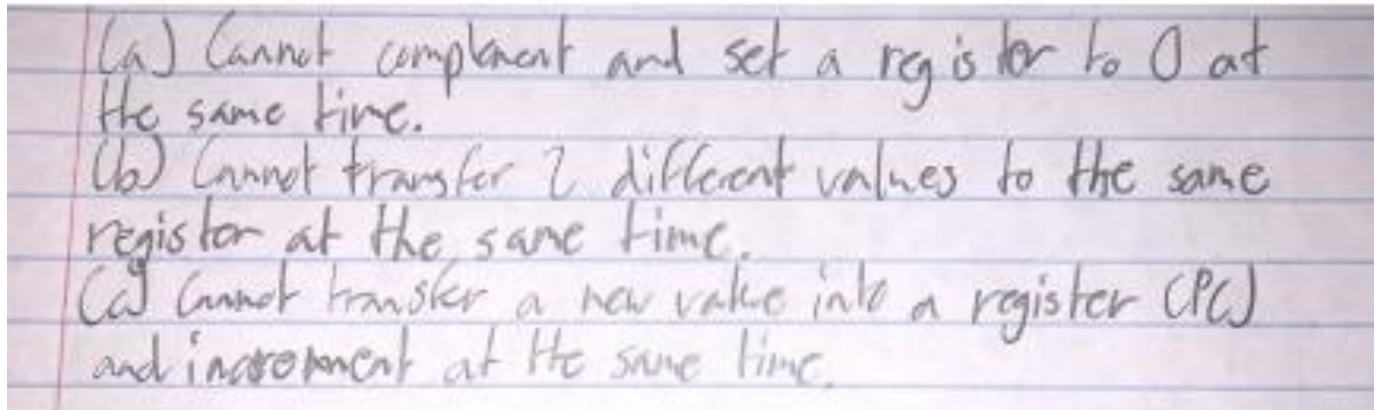 (a) Cannot complement and set a register to 0 at
the same time.
(b) Cannot transfer 2 different values to the same
register at the same time.
(c) Cannot transfer a new value into a register (PC)
and increment at the same time.